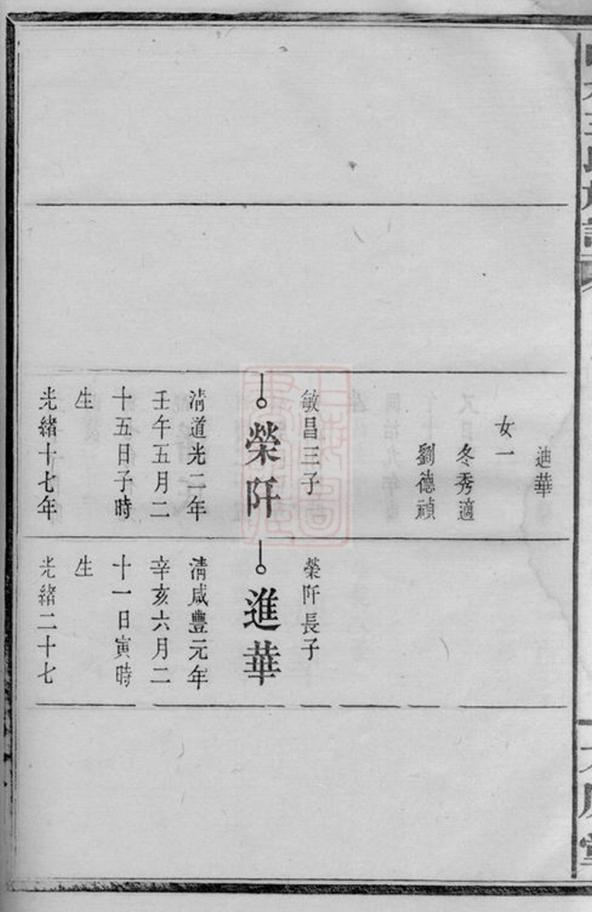 迪華
女一
冬秀適
劉德禎
敏昌三子
榮阡
清道光二年
壬午五月二
十五日子時
生
光緒十七年
榮阡長子
進華
清咸豐元年
辛亥六月二
十一日寅時
生
光緒二十七